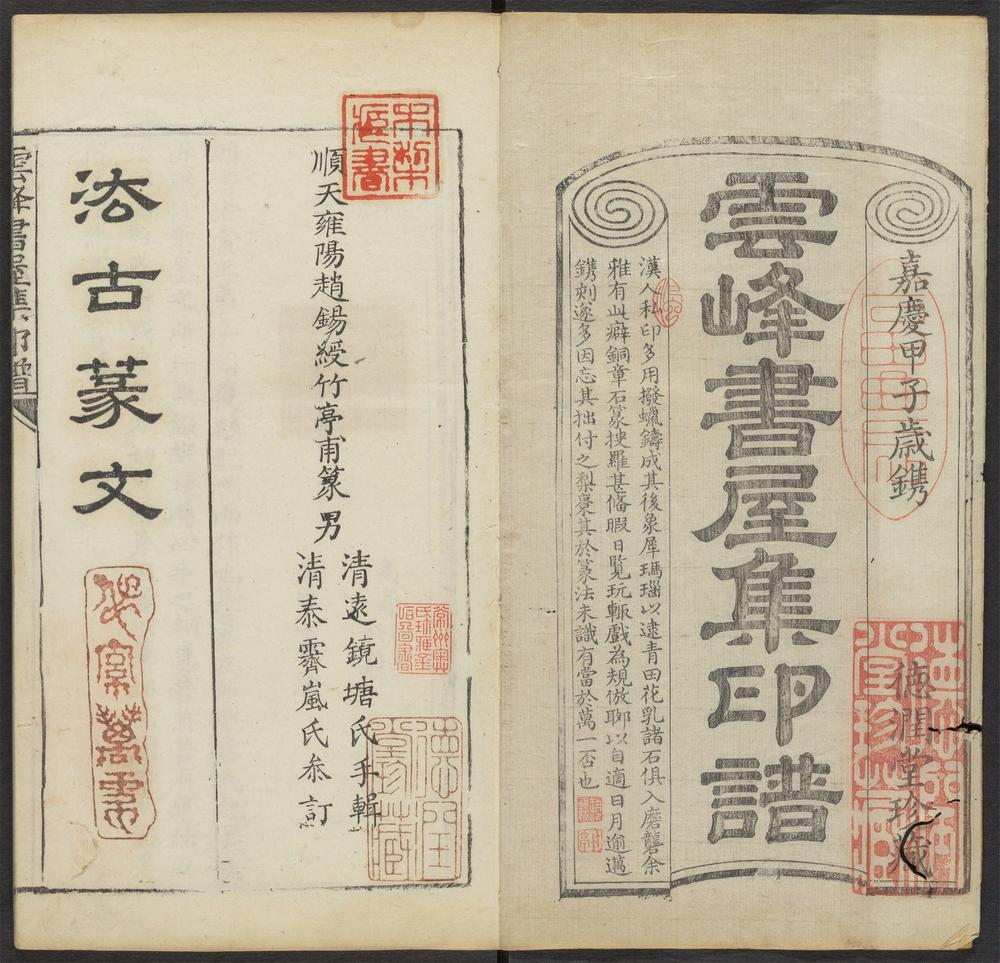 嘉慶甲子歲鐫
德潤堂珍藏
雲峰書屋集印譜
漢人私印多用撥蠟鑄成其後象犀瑪瑙以逮青田花乳諸石俱入磨礱余
雅有此癖銅章石篆搜羅甚備暇日覧玩輒戲為規倣聊以自適日月逾邁
鐫刻遂多因忘其拙付之梨棗其於篆法未識有當於萬一否也
順天雍陽趙錫綬竹亭甫篆男
清遠鏡塘氏手輯
清泰霽嵐氏叅訂
法古篆文
雲峰書屋集印譜